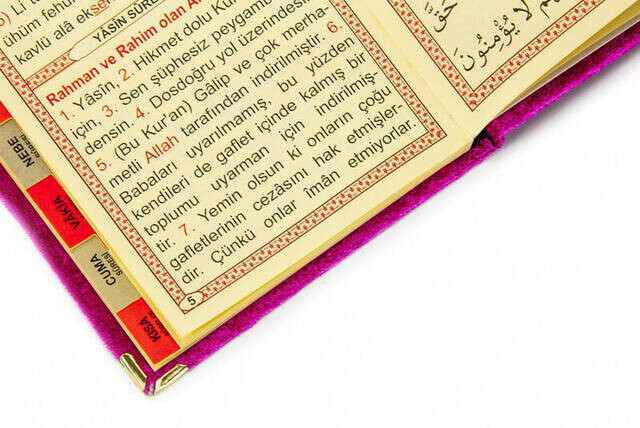 5) Lİ t
ühüm fehü
kavlü alâ ek
YÂSÎN SÛR
Rahman ve Rahim olan Al
1. Yâsîn. 2. Hikmet dolu Kur
için, 3. Sen şüphesiz peygamb
densin. 4. Dosdoğru yol üzerindesi
5. (Bu Kur'an) Gâlip ve çok merha-
metli Allah tarafından indirilmiştir. 6.
Babaları uyarılmamış, bu yüzden
kendileri de gaflet içinde kalmış bir
toplumu uyarman için indirilmiş-
tir. 7. Yemin olsun ki onların çoğu
gafletlerinin cezasını hak etmişler-
dir. Çünkü onlar îmân etmiyorlar.
5
NEBE
SÛRESİ
VÂKIA
CUMA
SÛRESİ
KISA
SÛRELER
حَقَّ
لَا يُؤْمِنُونَ